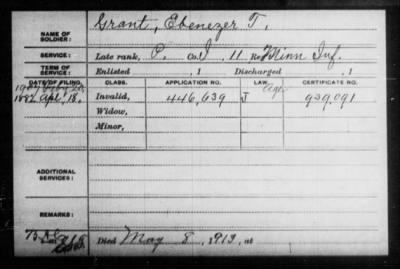 NAME OF SOLDIER: Grant, Ebenezer T.
SERVICE: Late rank, P. Co. I, 11 Reg. Minn Inf.
TERM OF SERVICE: Enlisted , 1 Discharged , 1
DATE OF FILING. CLASS. APPLICATION NO. LAW. CERTIFICATE NO.
1907
Age
1882 Apl. 18. Invalid, 446,639 J 939,091
Widow,
Minor,
ADDITIONAL SERVICES:
REMARKS:
Died May 8, 1913, at